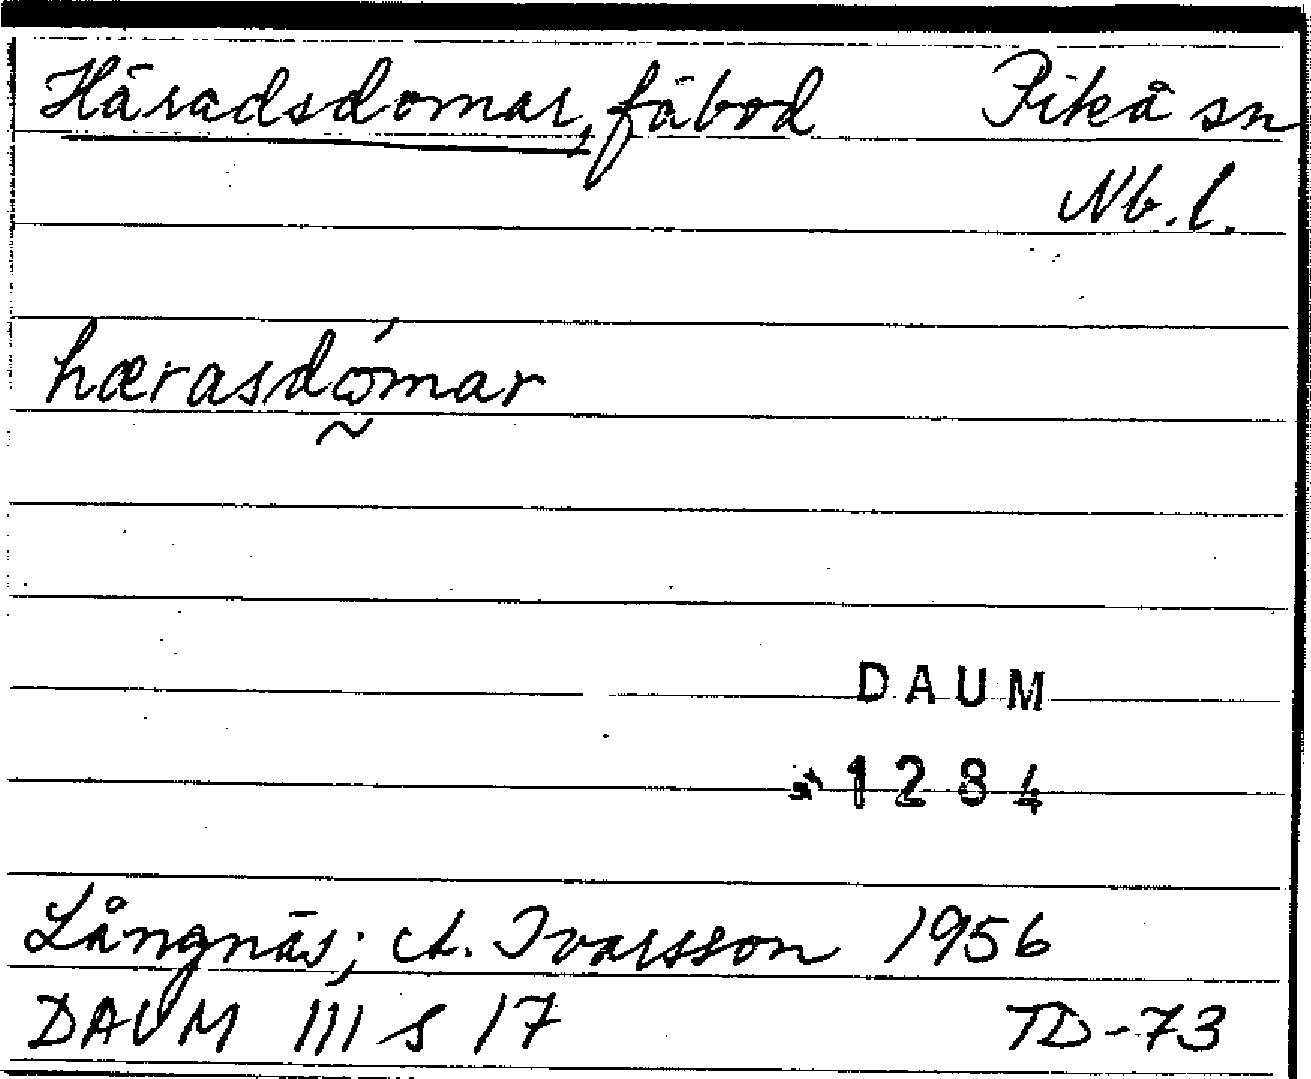 Häradsdomar, fäbod Piteå sn
Nb. l.
hærasdώ̰mar
DAUM
1284
Långnäs; A. Ivarsson 1956
DAUM III s 17 TD-73